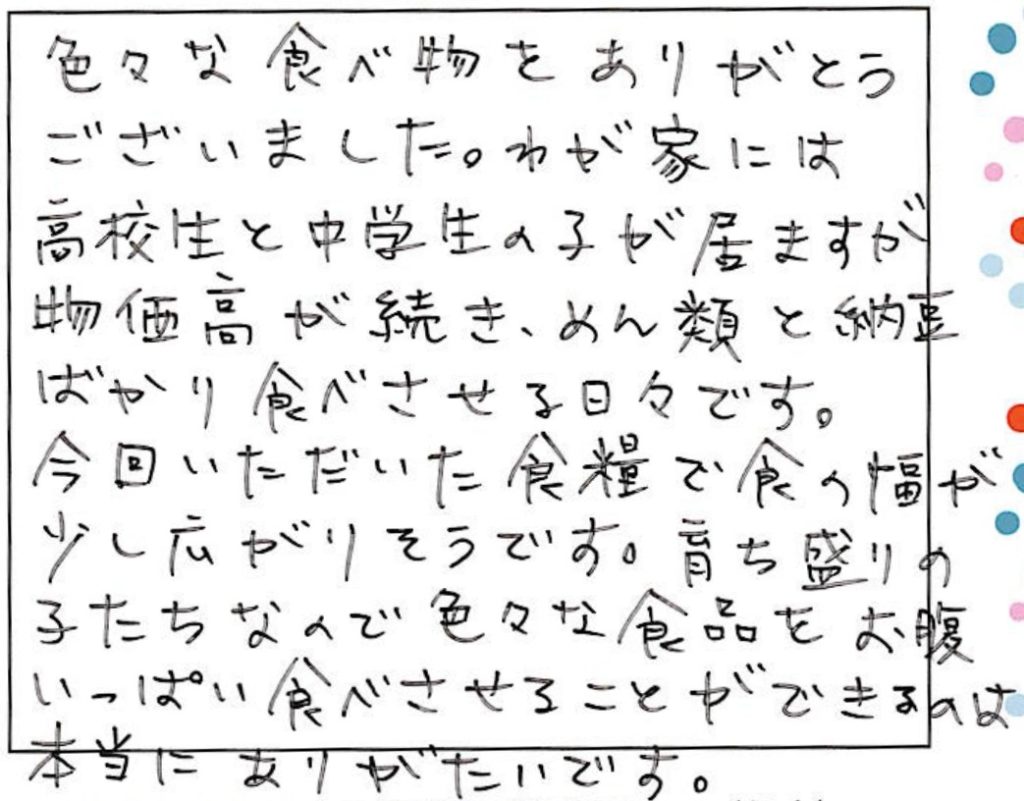 色々な食べ物をありがとう
ございました。わが家には
高校生と中学生の子が居ますが
物価高が続き、めん類と納豆
ばかり食べさせる日々です。
今回いただいた食糧で食の幅が
少し広がりそうです。育ち盛りの
子たちなので色々な食品をお腹
いっぱい食べさせることができるのは
本当にありがたいです。